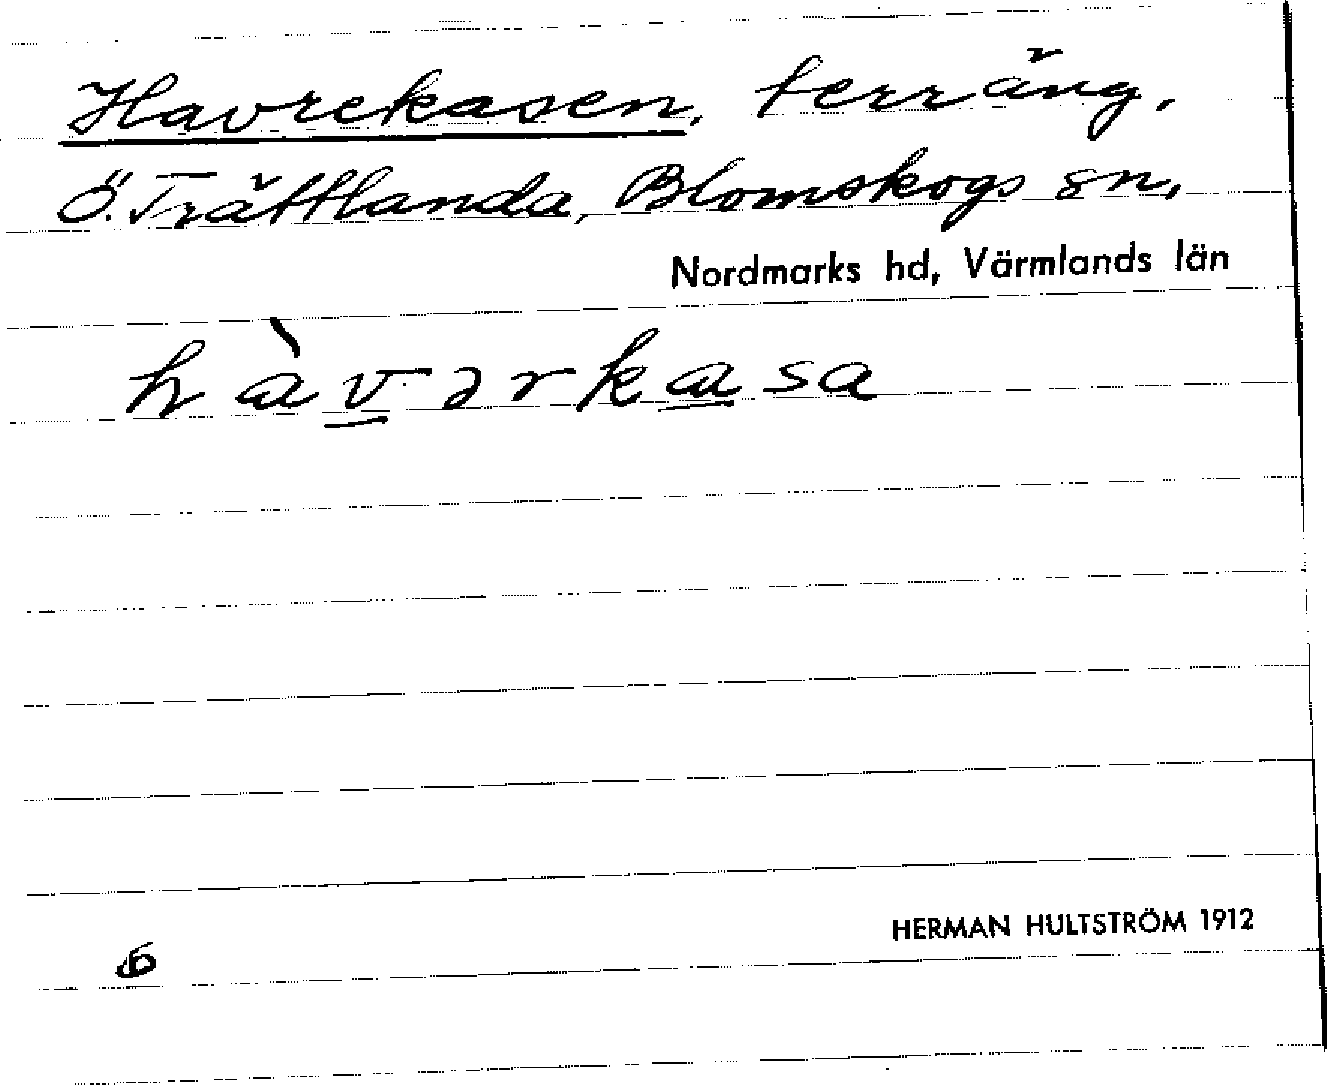 Havrekasen, terräng,
Ö. Trättlanda, Blomskogs sn,
Nordmarks hd, Värmlands län
hàvərkasa
HERMAN HULTSTRÖM 1912